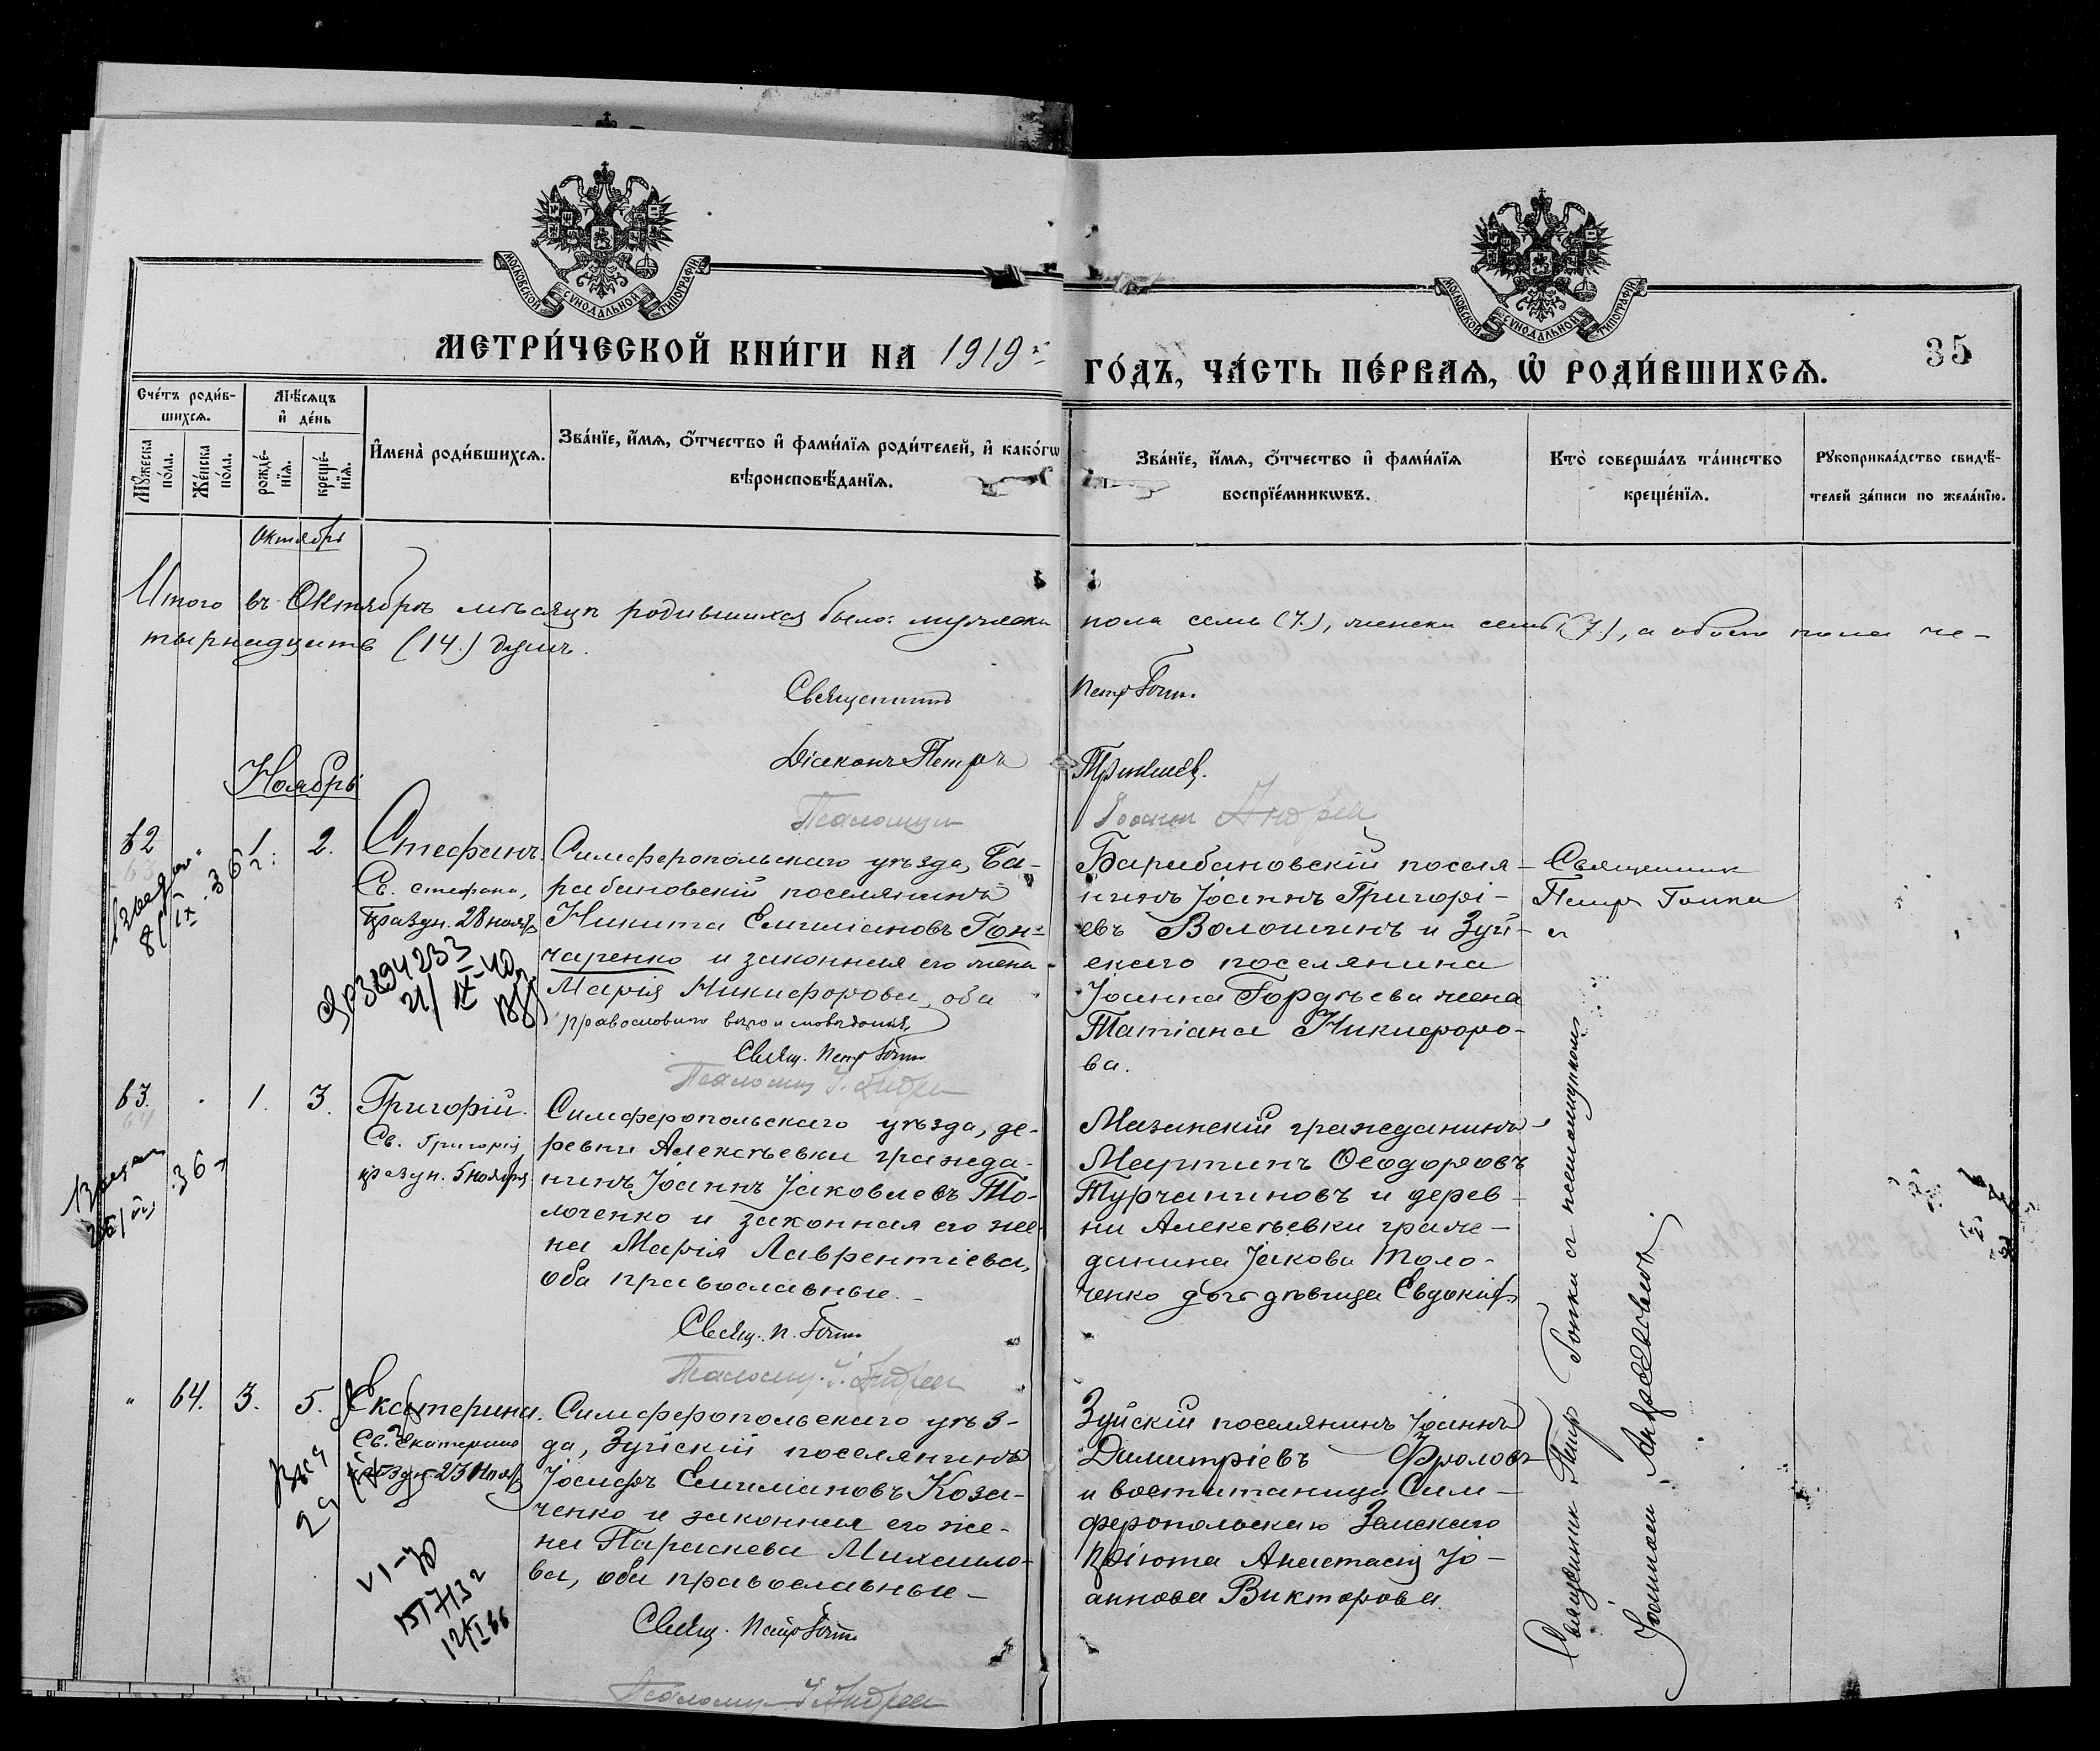 МОСКОВСКОЙ СѴНОДАЛЬНОЙ ТИПОГРАФІИ
МОСКОВСКОЙ СѴНОДАЛЬНОЙ ТИПОГРАФІИ
МЕТРИ́ЧЕСКОЙ КНИ́ГИ НА 1919 г.
ГО́ДЪ, ЧА́СТЬ ПЕ́РВАѦ, Ѡ҆ РОДИ́ВШИХСѦ.
35
Сче́тъ роди́в-
шихсѧ.
Мꙋ́жеска по́ла.
Же́нска по́ла.
Мѣ́сѧцъ
и҆ де́нь
рожде́-
нїѧ.
креще́-
нїѧ.
И҆мена̀ роди́вшихсѧ.
Зва́нїе, и҆́мѧ, ѻ҆́тчество и҆ фами́лїѧ роди́телей, и҆ како́гѡ
вѣроисповѣ́данїѧ.
Зва́нїе, и҆́мѧ, ѻ҆́тчество и҆ фами́лїѧ
воспрїе́мникѡвъ.
Кто̀ соверша́лъ та́инство
креще́нїѧ.
Рꙋкоприкла́дство свидѣ́-
телей за́писи по жела́нїю.
Октябрь
Итого въ Октябрѣ мѣсяцѣ родившихся было: мужеска пола семь (7.), женска семь (7.), а обоего пола че-
тырнадцать (14.) душъ.
Священникъ Петр
Діаконъ Петръ
Псаломщ Іоанн Андреа
Ноябрь
62
1
2.
Стефанъ.
Св. Стефана,
празун. 28 нояб
Симферопольскаго уѣзда, Ба-
рабановскій поселянинъ
Никита Емиліановъ Гон-
чаренко и законная его жена
Марія Никифорова, оба
православнаго вѣроисповѣданія.
Свящ. Петр
Псаломщ І. Андреа
Барабановскій поселя-
нинъ Іоаннъ Григорі-
евъ Волошинъ и Зуй-
скаго поселянина
Іоанна Гордѣева жена
Татіана Никифоро-
ва.
Священник
Петр
и
63.
1.
3.
Григорій.
Св. Григорія
празун. 5 ноября
Симферопольскаго уѣзда, де-
ревни Алексѣевки гражда-
нинъ Іоаннъ Іаковлевъ То-
лоченко и законная его же-
на Марія Лаврентіева,
оба православные.
Свящ. П.
Псаломщ. І. Андреа
Мазанскій гражданинъ
Мартинъ Ѳеодоровъ
Турчаниновъ и дерев-
ни Алексѣевки граж-
данина Іакова Толо-
ченко дочь дѣвица Евдокія
64.
3.
5.
Екатерина.
Св. Екатерина
празун. 23 Нояб
Симферопольскаго уѣз-
да, Зуйскій поселянинъ
Іосифъ Емиліановъ Коза-
ченко и законная его же-
на Параскева Михаило-
ва, оба православные
Свящ. Петр
Псаломщ І. Андреа
Зуйскій поселянинъ Іоаннъ
Димитріевъ Фроловъ
и воспитаница Сим-
феропольскаго Земскаго
пріюта Анастасія Іо-
аннова Викторова.
Священник Петр и псаломщиком
Іоанном